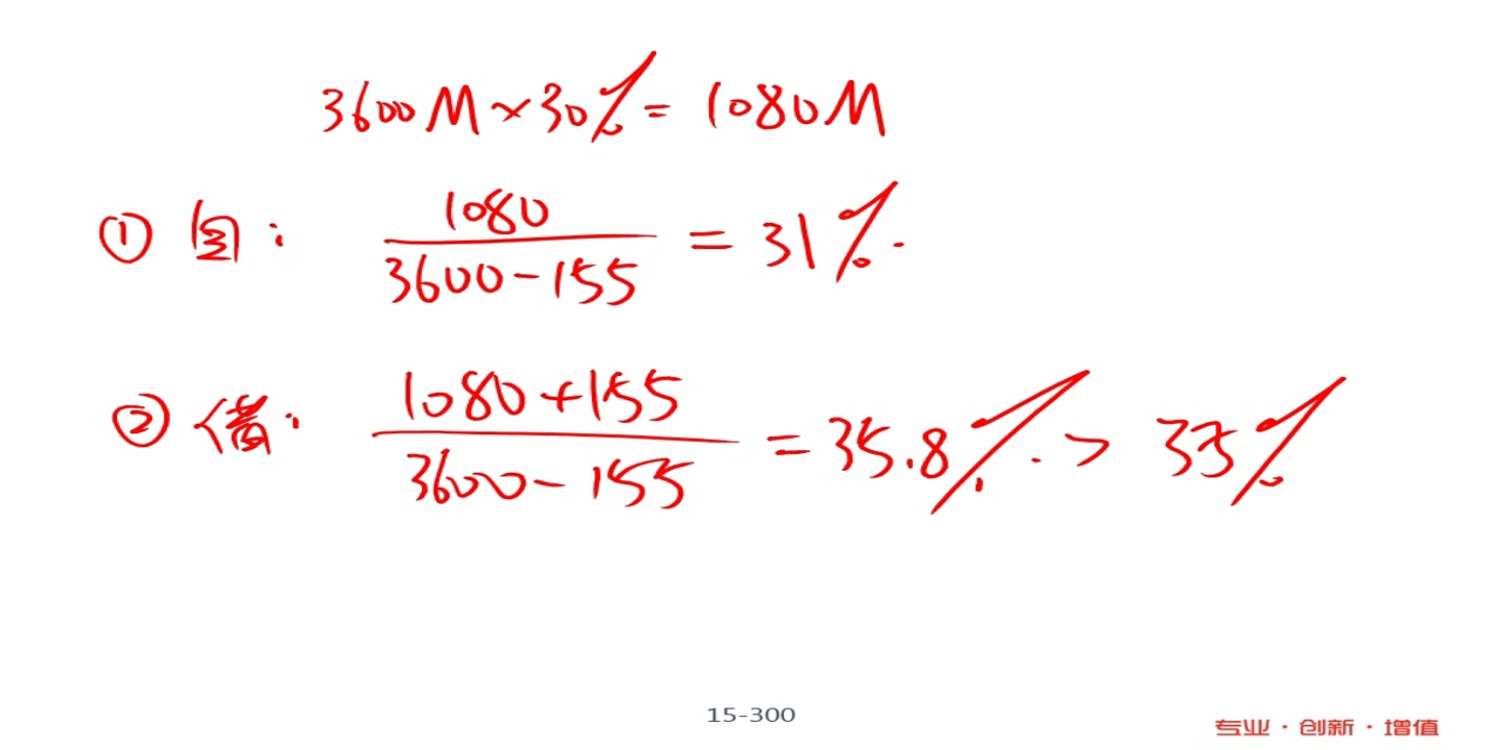 3600M×30%=1080M
① 自: 1080/(3600-155) = 31%.
② 借: (1080+155)/(3600-155) = 35.8%. > 35%
15-300
专业·创新·增值